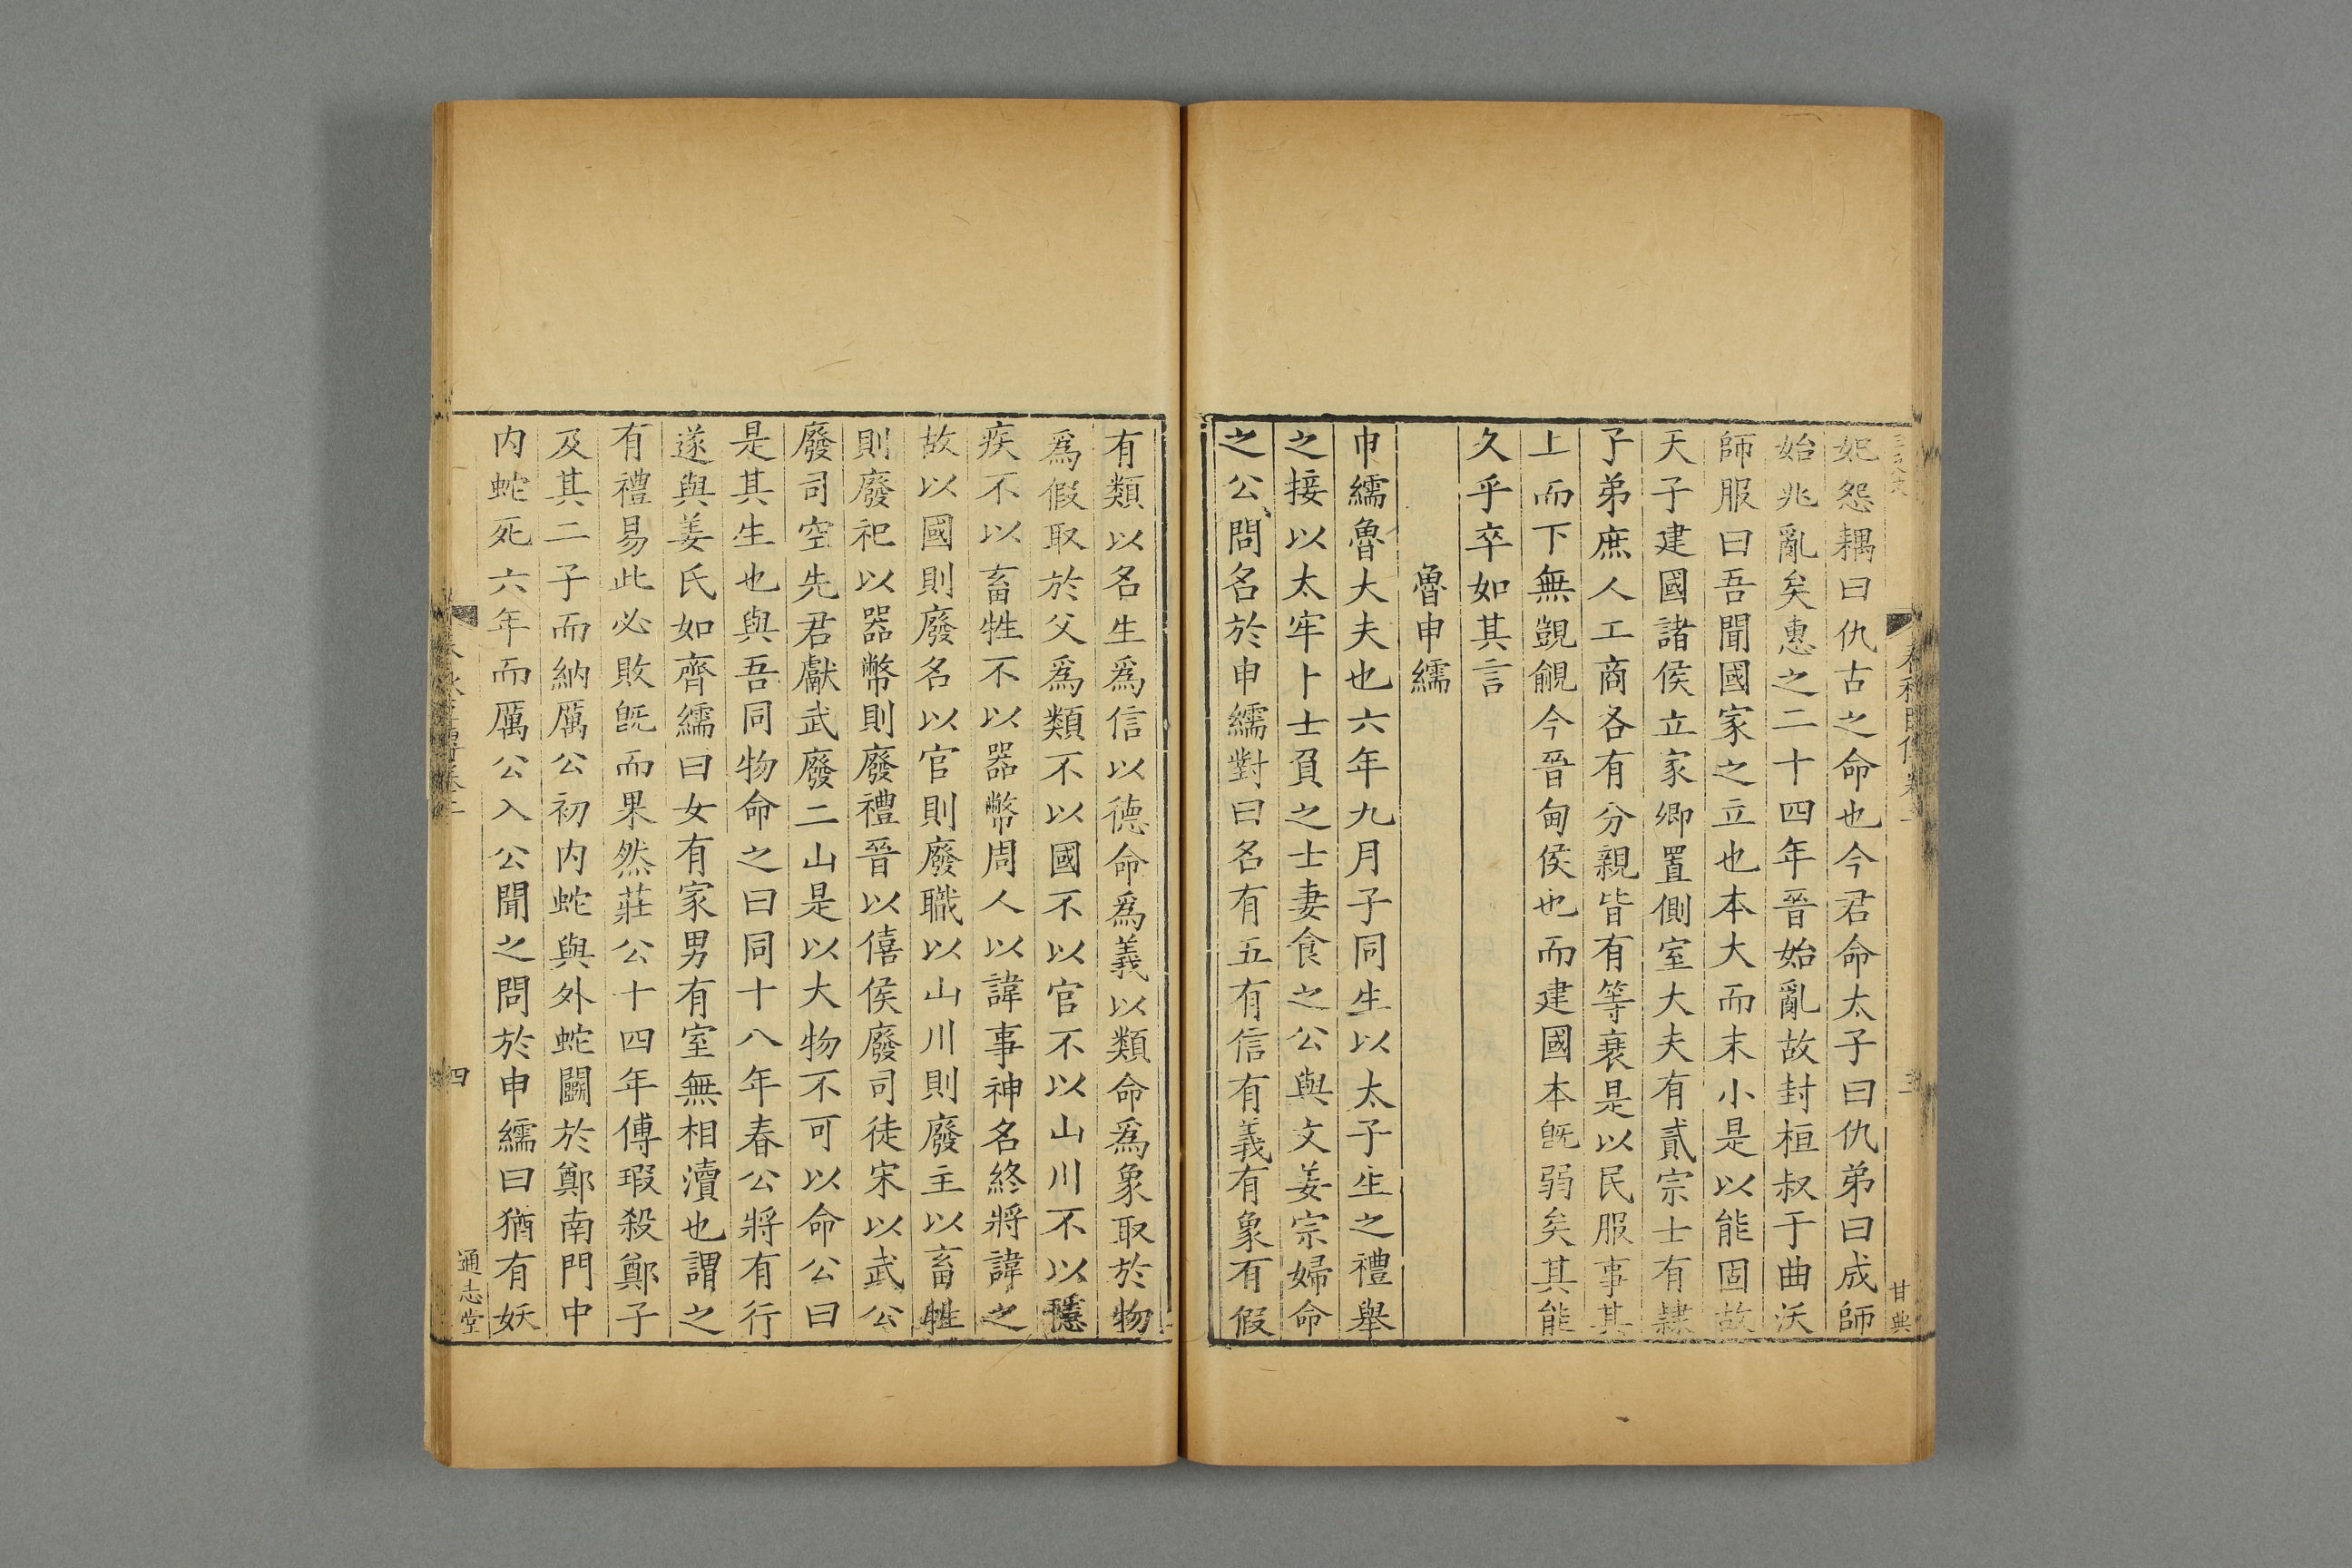 妃怨耦曰仇古之命也今君命太子曰仇弟曰成師
始兆亂矣惠之二十四年晉始亂故封桓叔于曲沃
師服曰吾聞國家之立也本大而末小是以能固故
天子建國諸侯立家卿置側室大夫有貳宗士有隸
子弟庶人工商各有分親皆有等衰是以民服事其
上而下無覬覦今晉甸侯也而建國本旣弱矣其能
久乎卒如其言
魯申繻
申繻魯大夫也六年九月子同生以太子生之禮舉
之接以太牢卜士負之士妻食之公與文姜宗婦命
之公問名於申繻對曰名有五有信有義有象有假
有類以名生爲信以德命爲義以類命爲象取於物
爲假取於父爲類不以國不以官不以山川不以隱
疾不以畜牲不以器幣周人以諱事神名終將諱之
故以國則廢名以官則廢職以山川則廢主以畜牲
則廢祀以器幣則廢禮晉以僖侯廢司徒宋以武公
廢司空先君獻武廢二山是以大物不可以命公曰
是其生也與吾同物命之曰同十八年春公將有行
遂與姜氏如齊繻曰女有家男有室無相瀆也謂之
有禮易此必敗旣而果然莊公十四年傅瑕殺鄭子
及其二子而納厲公初内蛇與外蛇鬭於鄭南門中
内蛇死六年而厲公入公聞之問於申繻曰猶有妖
四
通志堂
甘典